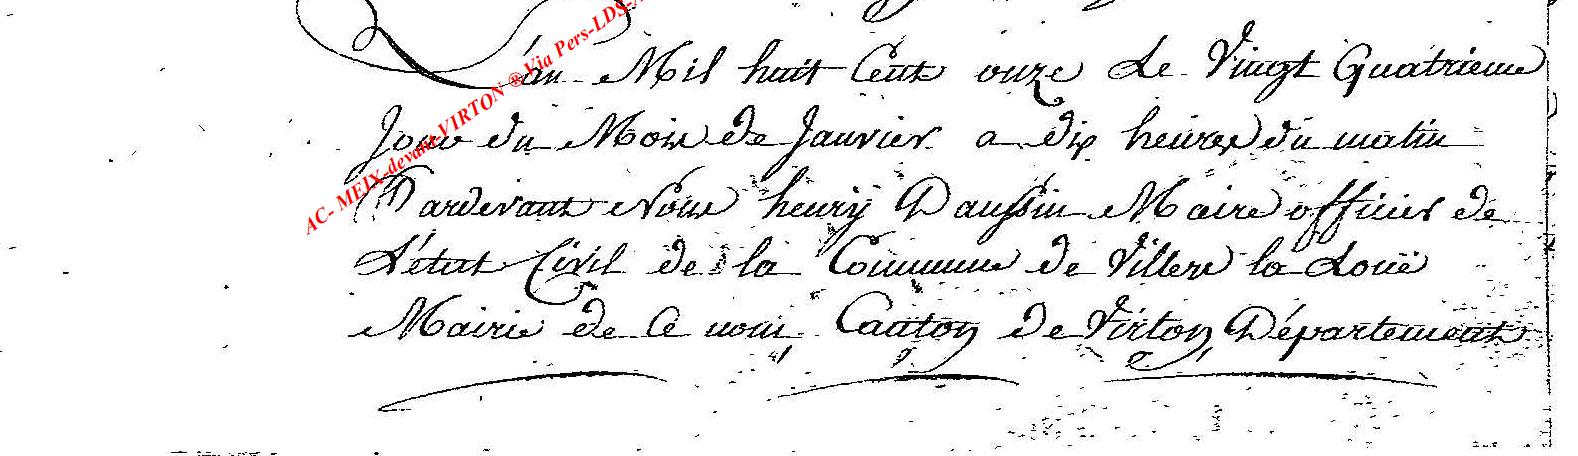 L'an Mil huit Cent onze Le Vingt Quatrieme
Jour du Mois de Janvier a dix heures du matin
Pardevant Nous henrÿ Daussin Maire officier de
L'état Civil de la Commune de Villers la Loüe
Mairie de Ce nom, Canton de Virton, Département
AC- MEIX-devant-VIRTON ® Via Pers-LDS-